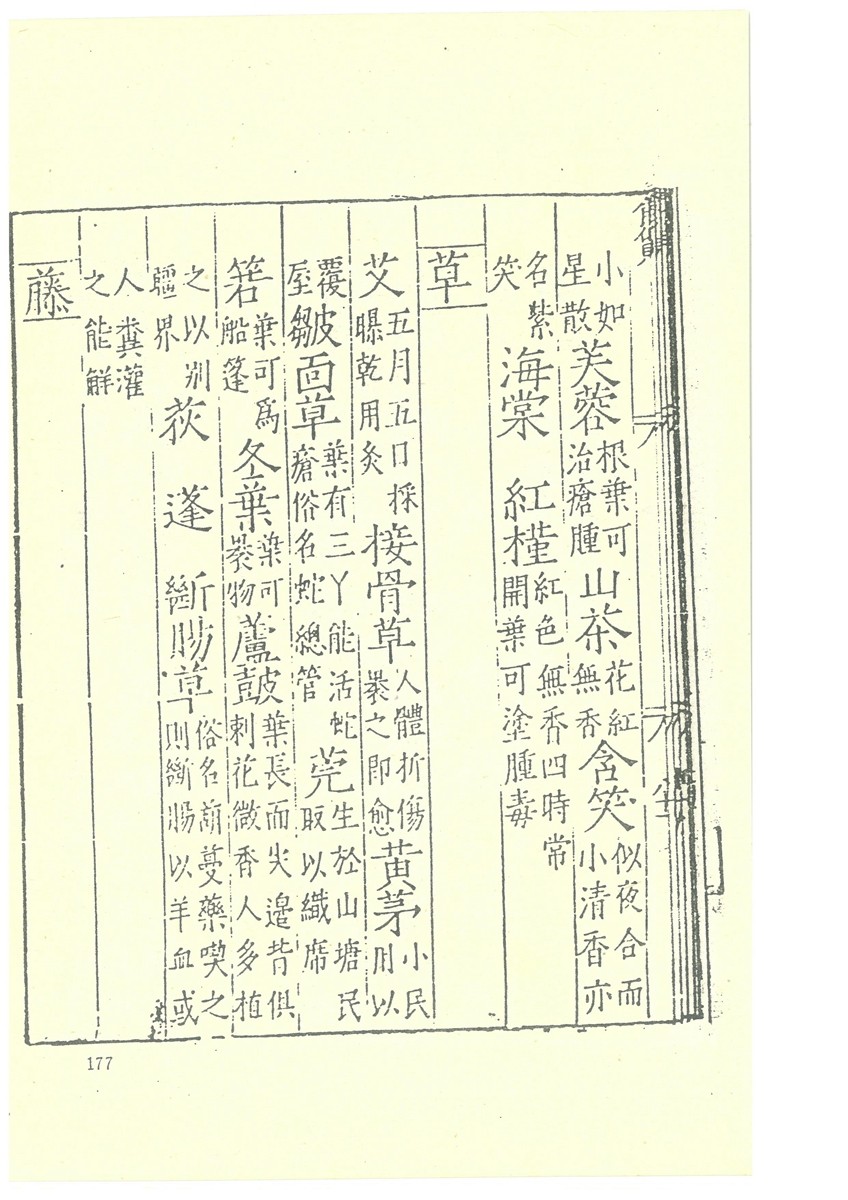 小如星散芙蓉根葉可治瘡腫山茶花紅無香含笑似夜合而小清香亦
名紫笑海棠 紅槿紅色無香四時常開葉可塗腫毒
草
艾五月五日採曝乾用灸接骨草人體折傷裹之即愈黃茅小民用以
覆屋皺面草葉有三丫能活蛇瘡俗名蛇總管莞生於山塘民取以織席
箬葉可爲船篷冬葉葉可裹物蘆皷葉長而尖邉皆俱刺花微香人多植
之以别疆界荻 蓬 斷腸草俗名葫蔓藥喫之則斷腸以羊血或
人糞灌之能解
藤
177